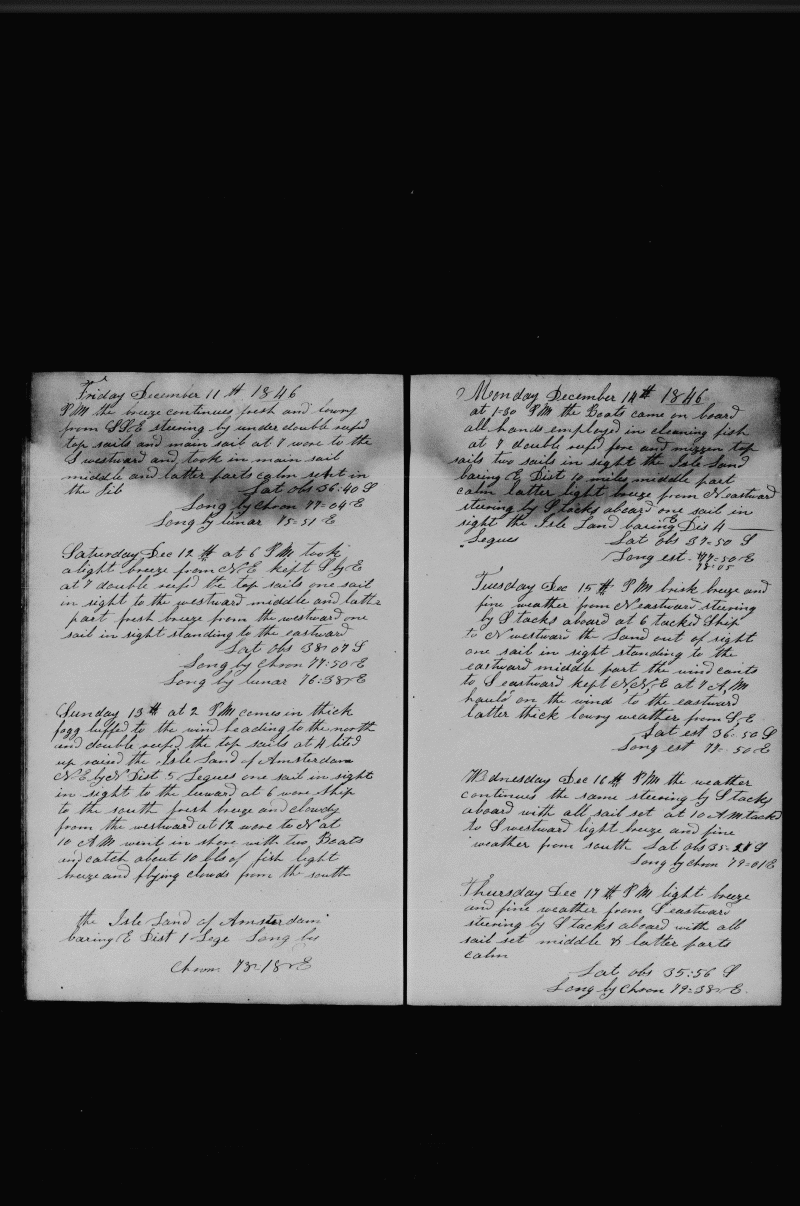 Friday December 11th 1846
PM the breeze continues fresh and lowry
from SSE steering by under double reefd
top sails and main sail at 7 wore to the
S westward and took in main sail
middle and latter parts calm sent in
the Jib Lat obs 36:40 S
Long by Chron 77=04 E
Long by lunar 75=51 E
Saturday Dec 12th at 6 PM took
a light breeze from NE kept S by E
at 7 double reefd the top sails one sail
in sight to the westward middle and latte
part fresh breeze from the westward one
sail in sight standing to the eastward
Lat obs 38=07 S
Long by Chron 77=50 E
Long by lunar 76=38 E
Sunday 13th at 2 PM comes in thick
fogg luffed to the wind heading to the north
and double reefd the top sails at 4 lited
up raised the Isle Land of Amsterdam
NE by N Dist 5 Legues one sail in sight
in sight to the leeward at 6 wore ship
to the south fresh breeze and cloudy
from the westward at 12 wore to N at
10 AM went in shore with two Boats
and catch about 10 bls of fish light
breeze and flying clouds from the south
the Isle Land of Amsterdam
baring E Dist 1 Lege Long by
Chron 78=18 E
Monday December 14th 1846
at 1=30 PM the Boats came on board
all hands employed in cleaning fish
at 7 double reefd fore and mizzen top
sails two sails in sight the Isle Land
baring E Dist 10 miles middle part
calm latter light breeze from N eastward
steering by S tacks aboard one sail in
sight the Isle Land baring E Dis 4
Legues Lat obs 37=50 S
Long est 77=50 E
78=05
Tuesday Dec 15th PM brisk breeze and
fine weather from N eastward steering
by S tacks aboard at 6 tacked Ship
to N westward the Land out of sight
one sail in sight standing to the
eastward middle part the wind cants
to S eastward kept N,N,E at 7 A,M
hauld on the wind to the eastward
latter thick lowry weather from S,E
Lat est 36:50 S
Long est 78=50 E
Wednesday Dec 16th PM the weather
continues the same steering by S tacks
aboard with all sail set at 10 AM tacked
to S westward light breeze and fine
weather from south Lat obs 35=28 S
Long by Chron 79=01 E
Thursday Dec 17th PM light breeze
and fine weather from S eastward
steering by S tacks aboard with all
sail set middle & latter parts
calm
Lat obs 35:56 S
Long by Chron 79=38 E